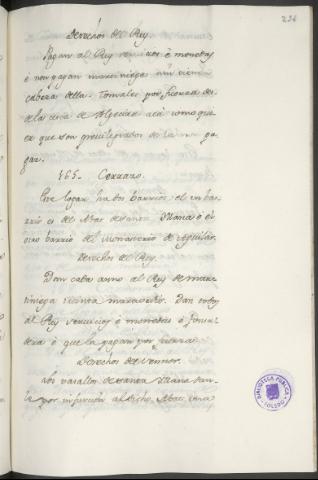 236
Derechos del Rey.
Pagan al Rey servicios é monedas
é non pagan martiniega nin tienen
cabeza della. Tomales por fuerza des
de la cerca de Algecira acá como quier
er que son previlegiados de la non pa
gar.
165. Cerrazo.
Este logar ha dos barrios, el un bar
rio es del Abat de Santa Maria é el
otro barrio del Monasterio de Aguilar.
Derechos del Rey.
Dan cada anno al Rey de mar
tiniega treinta maravedis. Dan otrosy
al Rey servicios é monedas é fonsa
dera é que la pagan por fuerza.
Derechos del Sennor.
Los vasallos de Santa Maria dan
le por infurcion al dicho Abat cinco
BIBLIOTECA PÚBLICA
TOLEDO